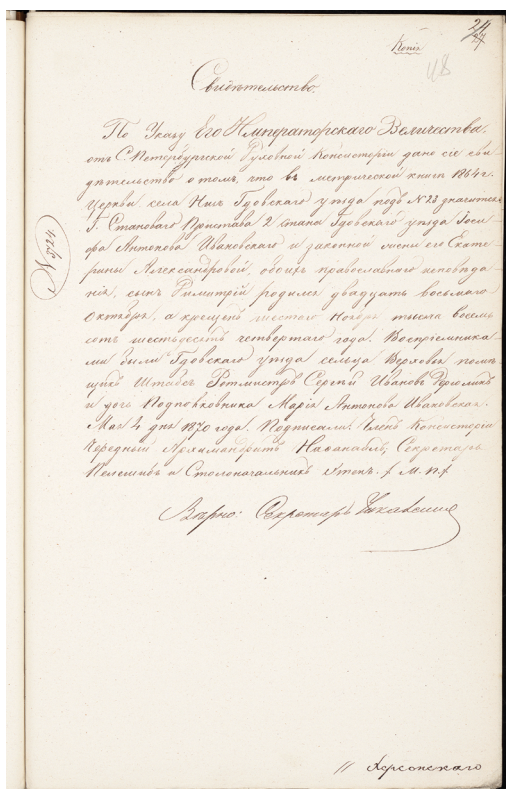 24
27
Копія
48
Свидѣтельство.
По Указу Его Императорскаго Величества,
отъ С. Петербургской Духовной Консисторіи дано сіе сви-
дѣтельство о томъ, что въ метрической книгѣ 1864 г.
Церкви села Гдовскаго уѣзда подъ N 23 значится:
Г. Становаго Пристава 2 стана Гдовскаго уѣзда Іоси-
фа Антонова Иваковскаго и законной жены его Екате-
рины Александровой, обоихъ православнаго исповѣда-
нія, сынъ Димитрій родился двадцать восьмаго
Октября, а крещенъ шестаго Ноября тысяча восемь
сотъ шестьдесятъ четвертаго года. Воспріемника-
ми были Гдовскаго уѣзда сельца Верховья помѣ-
щикъ Штабсъ Ротмистръ Сергѣй Ивановъ
и дочь Подполковника Марія Антонова Иваковская.
Мая 4 дня 1870 года. Подписали: Членъ Консисторіи
Чередный Архимандритъ Нафанаилъ, Секретарь
и Столоначальникъ М. П.
Вѣрно: Секретарь
N 4259
11 Херсонскаго